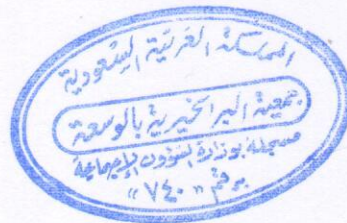 المملكة العربية السعودية
جمعية البر الخيرية بالوسعة
مسجلة بوزارة الشؤون الإجتماعية
برقم "٧٤٠"